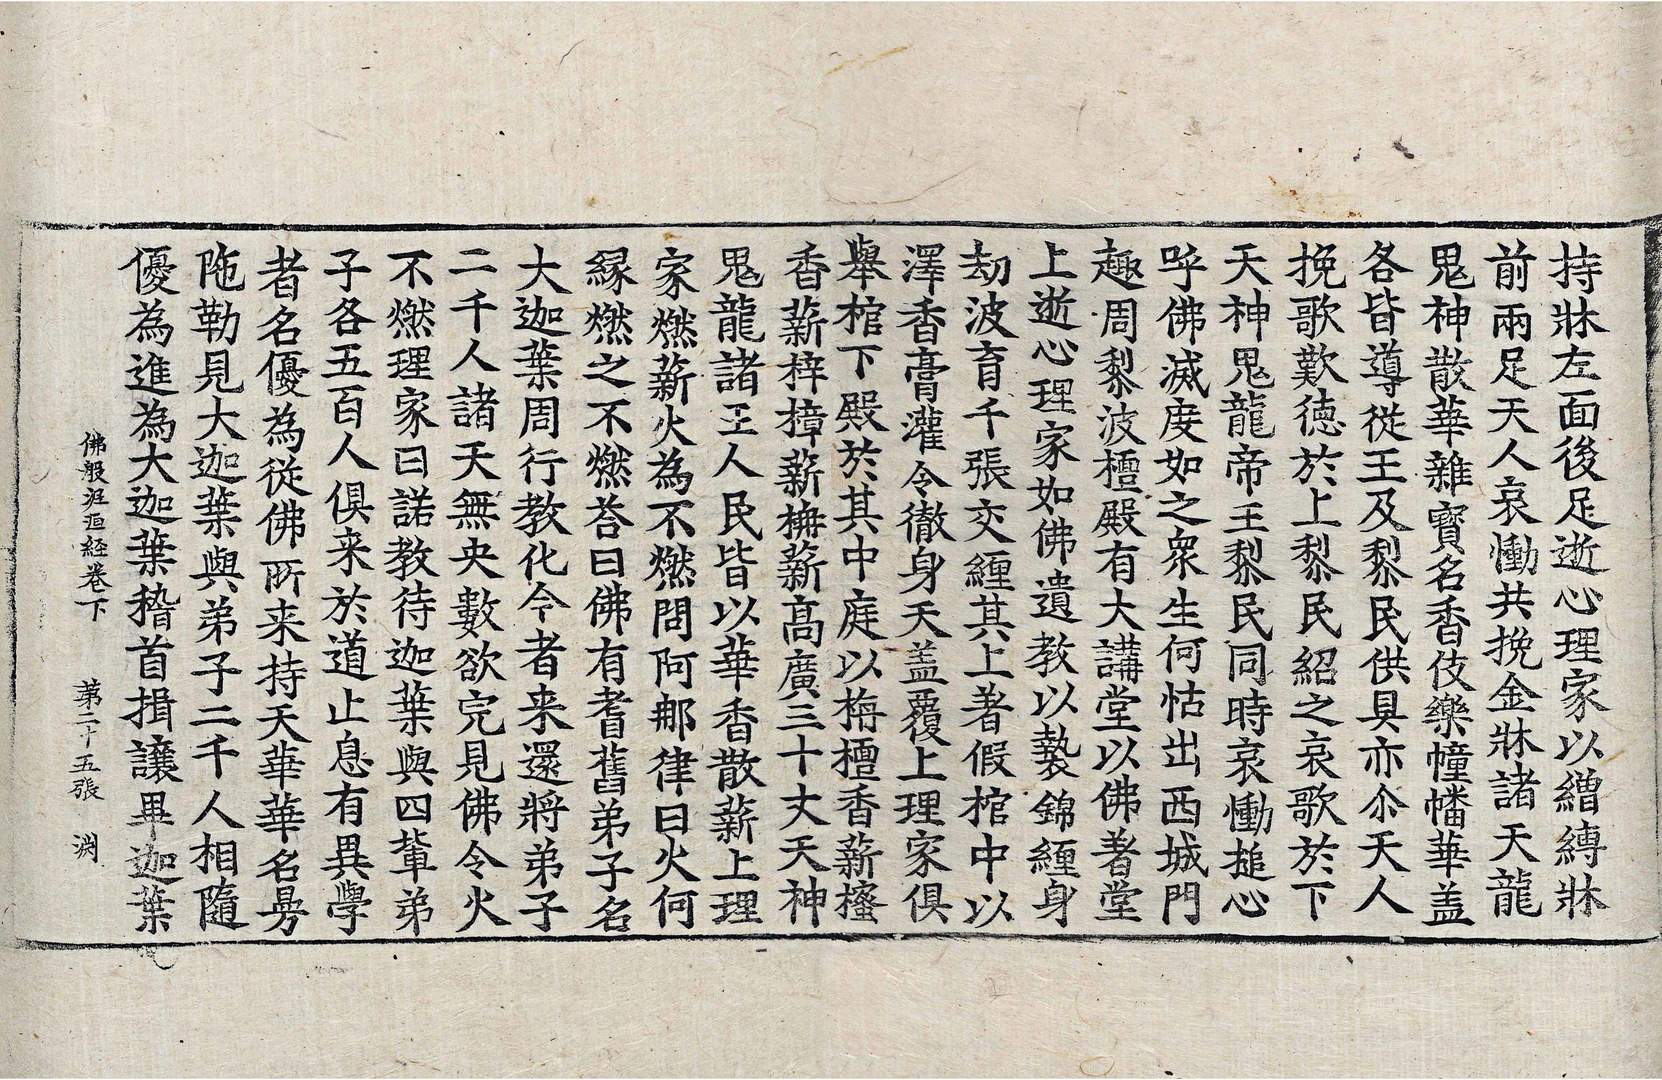 持牀左面後足逝心理家以繒縛牀
前兩足天人哀慟共挽金牀諸天龍
鬼神散華雜寶名香伎樂幢幡華盖
各皆導從王及黎民供具亦尒天人
挽歌歎德於上黎民紹之哀歌於下
天神鬼龍帝王黎民同時哀慟搥心
呼佛滅度如之衆生何怙出西城門
趣周黎波檀殿有大講堂以佛著堂
上逝心理家如佛遺教以㲲錦纏身
劫波育千張交纏其上著假棺中以
澤香膏灌令徹身天盖覆上理家俱
舉棺下殿於其中庭以栴檀香薪櫁
香薪梓樟薪栴薪高廣三十丈天神
鬼龍諸王人民皆以華香散薪上理
家燃薪火為不燃問阿那律曰火何
緣燃之不燃荅曰佛有耆舊弟子名
大迦葉周行教化今者来還將弟子
二千人諸天無央數欲完見佛令火
不燃理家曰諾教待迦葉與四軰弟
子各五百人俱来於道止息有異學
者名優為從佛所来持天華華名曼
陁勒見大迦葉與弟子二千人相隨
優為進為大迦葉稽首揖讓畢迦葉
佛般泥洹經卷下　第二十五張　淵